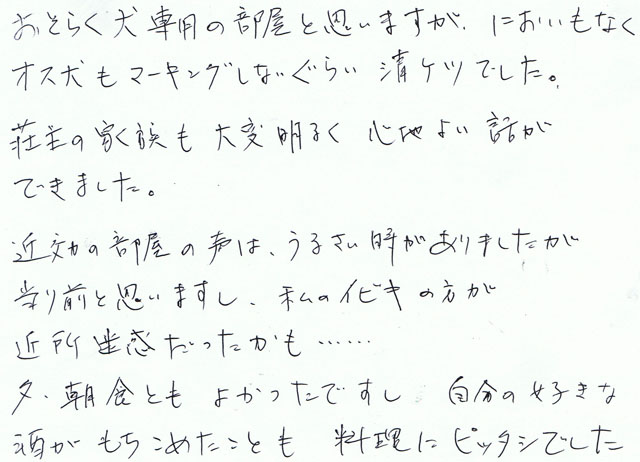 おそらく犬専用の部屋と思いますが、においもなく
オス犬もマーキングしないぐらい清ケツでした。
荘主の家族も大変明るく心地よい話が
できました。
近交の部屋の声は、うるさい時がありましたが
当り前と思いますし、私のイビキの方が
近所迷惑だったかも……
夕・朝食ともよかったですし 自分の好きな
酒がもちこめたことも料理にピッタシでした